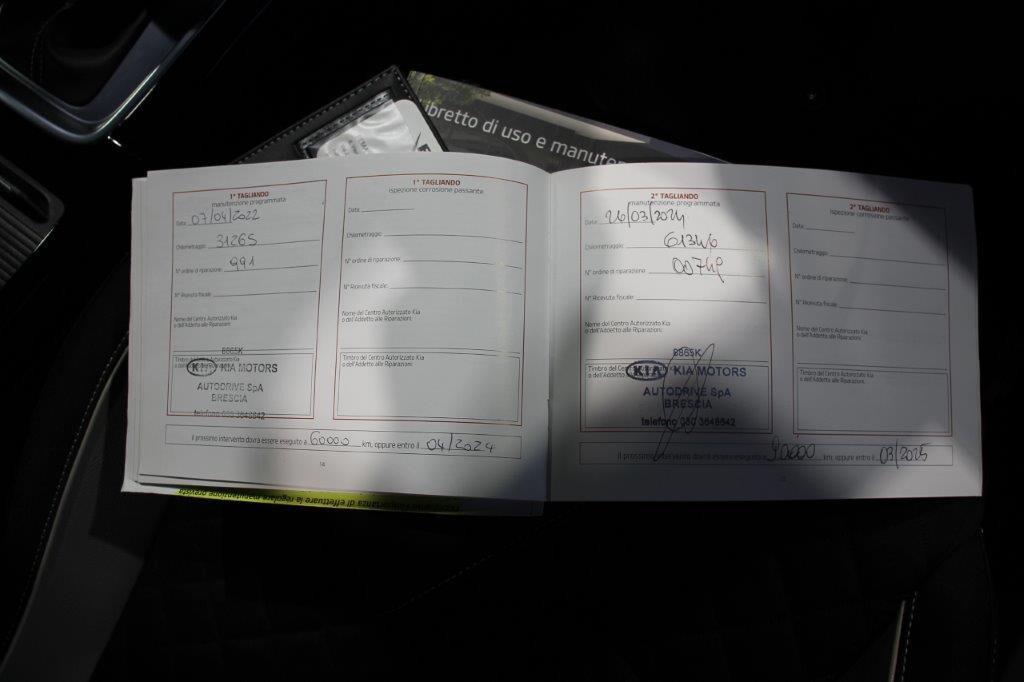 ibretto di uso e manuten
1° TAGLIANDO
manutenzione programmata
Data: 07/04/2022
Chilometraggio: 31265
N° ordine di riparazione: 991
N° Ricevuta fiscale:
Nome del Centro Autorizzato Kia
o dell'Addetto alle Riparazioni:
Timbro del Centro Autorizzato Kia
o dell'Addetto alle Riparazioni:
8865K
KIA KIA MOTORS
AUTODRIVE SpA
BRESCIA
telefono 030 3648642
1° TAGLIANDO
ispezione corrosione passante
Data:
Chilometraggio:
N° ordine di riparazione:
N° Ricevuta fiscale:
Nome del Centro Autorizzato Kia
o dell'Addetto alle Riparazioni:
Timbro del Centro Autorizzato Kia
o dell'Addetto alle Riparazioni:
Il prossimo intervento dovrà essere eseguito a 60000 km, oppure entro il 04/2024
14
2° TAGLIANDO
manutenzione programmata
Data: 26/03/2024
Chilometraggio: 61346
N° ordine di riparazione: 00749
N° Ricevuta fiscale:
Nome del Centro Autorizzato Kia
o dell'Addetto alle Riparazioni:
8865K
KIA KIA MOTORS
AUTODRIVE SpA
BRESCIA
telefono 030 3648642
2° TAGLIANDO
ispezione corrosione passante
Data:
Chilometraggio:
N° ordine di riparazione:
N° Ricevuta fiscale:
Nome del Centro Autorizzato Kia
o dell'Addetto alle Riparazioni:
Timbro del Centro Autorizzato Kia
o dell'Addetto alle Riparazioni:
Il prossimo intervento dovrà essere eseguito a 90000 km, oppure entro il 03/2025
l'importanza di effettuare la regolare manutenzione previst